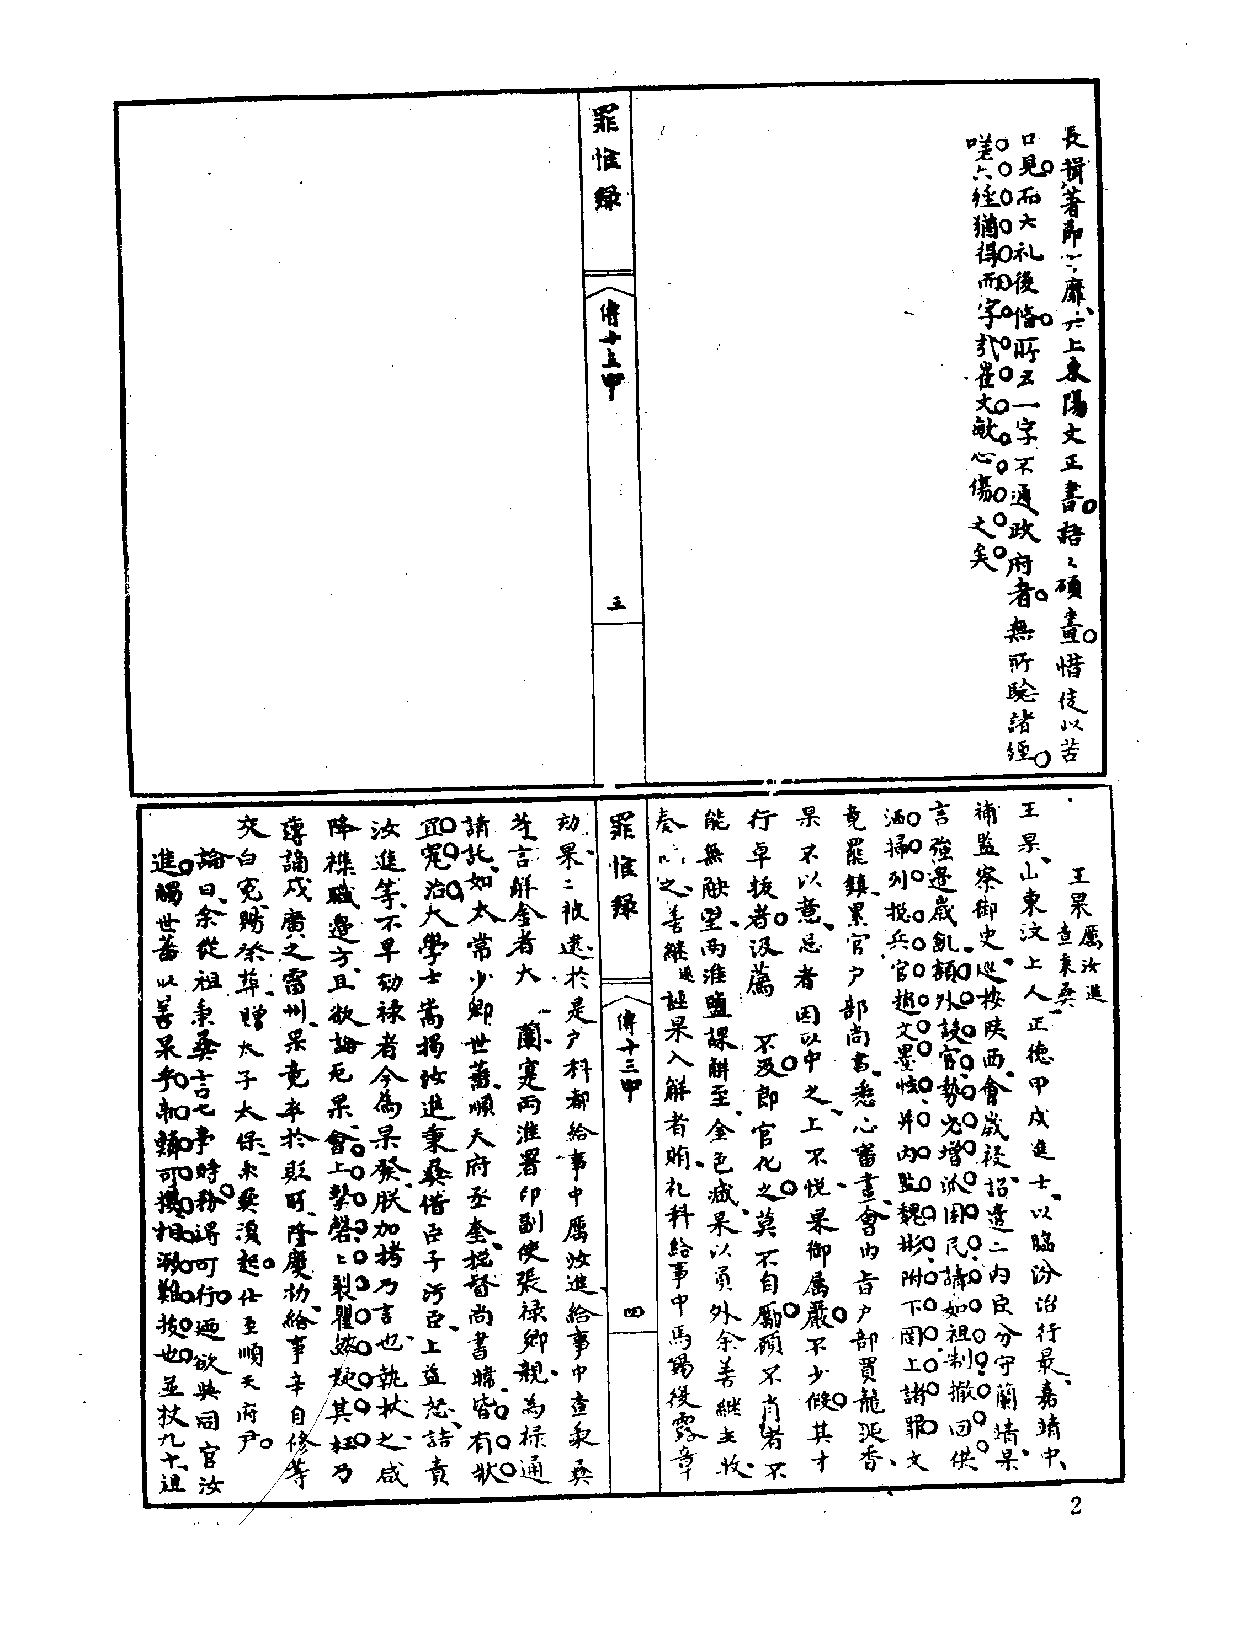 長揖著節
靡
六上東陽文正書語々碩畫惜徒以苦
口見而大礼後脩所云一字不通政府者無所騐諸經
嗟六經猶得而字
崔文敏心傷之矣
罪惟錄
傳十三甲
三
王杲
厲汝進
查秉彝
王杲山東汶上人正德甲戌進士以臨汾治行最嘉靖中
補監察御史巡按陝西會歲祲詔遣二內臣分守蘭靖杲
言強邊歲飢額外設官勢必增派困民請如祖制撤回供
洒掃列投兵官趙文墨
并內監魏彬附下罔上諸罪文
竟罷鎮累官戶部尚書悉心籌畫會內旨戶部買龍涎香
杲不以意忌者因以中之上不悅杲御属嚴不少假其才
行卓拔者汲薦
不汲郎官化之莫不自勵碩不肖者不
能無觖望兩淮鹽課解至金色
杲以員外余善継主收
奏
之善継
誣杲入解者賄札科給事中馬錫復露章
罪惟錄
傳十三甲
四
劾杲二被逮於是戶科都給事中厲汝進給事中查秉彝
等言解金者大
蘭寔兩淮署印副使張祿卿親為祿通
請託如太常少卿世蕃順天府丞奎
督尚書暐皆有狀
宜寃治大學士嵩揭汝進秉彝偕臣子污臣上益怒詰責
汝進等不早劾祿者今為杲發朕加拷乃言也執杖之咸
降襍職邊方且欲論死杲會上擊磬上裂瞿然疑其枉乃
薄謫戍廣之雷州杲竟卒於貶所隆慶初給事辛自修等
交白寃賜祭葬贈太子太保秉彝湏起仕至順天府尹
論曰余從祖秉彝言七事時務得可行迺欲與同官汝
進觸世蕃以善杲乎
轉可
相
難拔也並杖九十
2